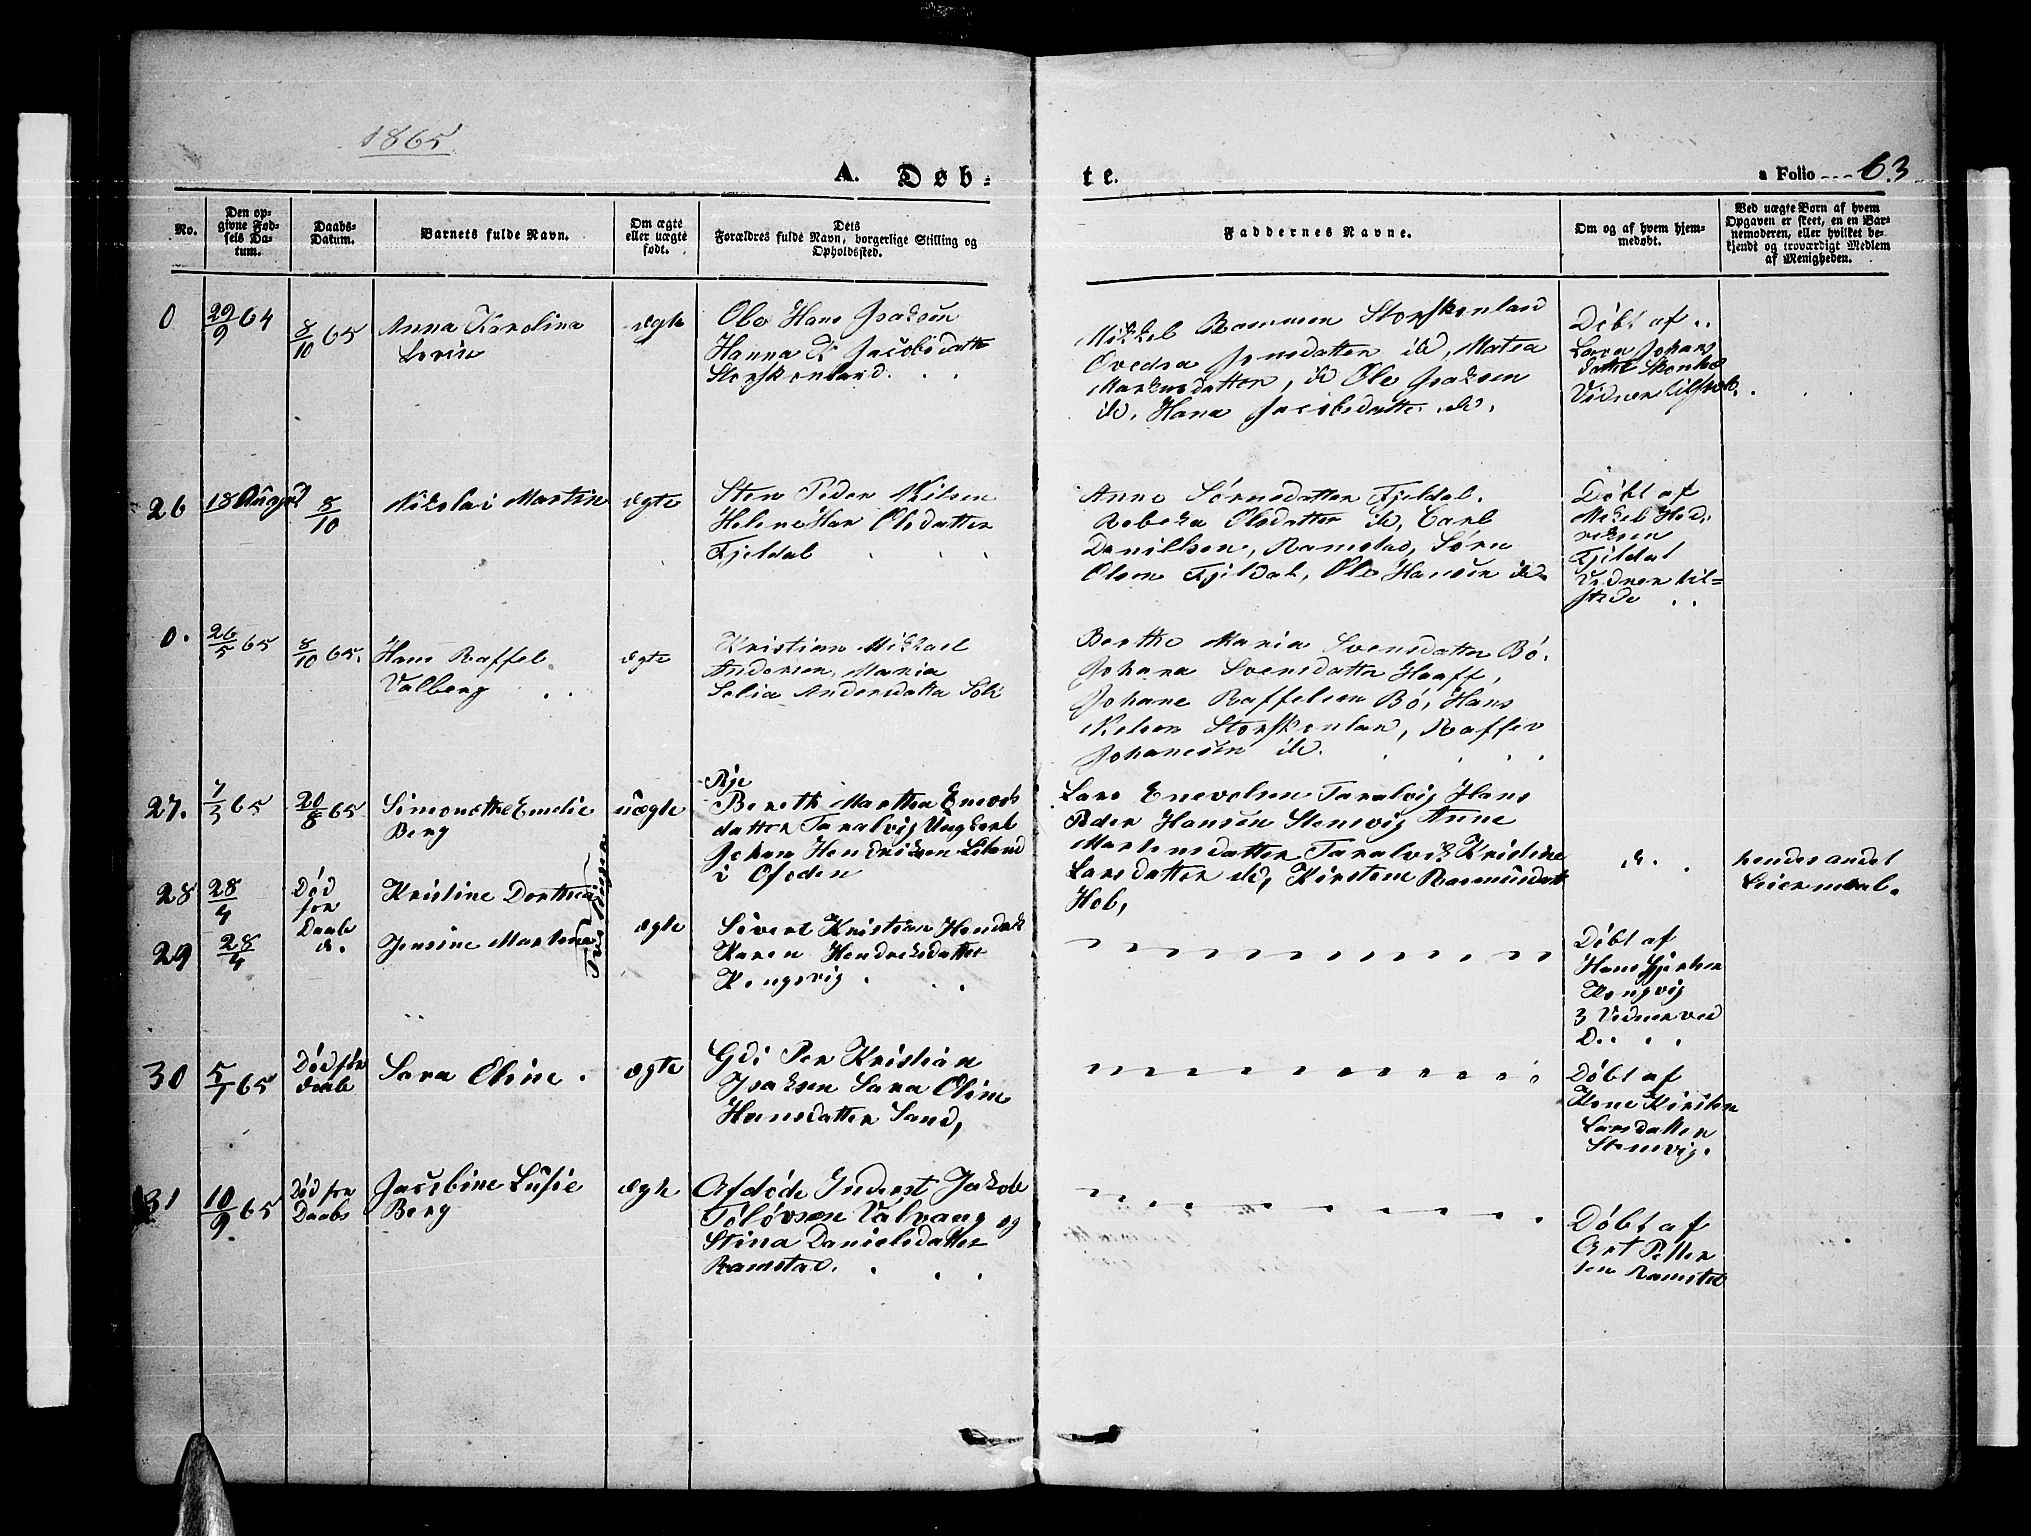 1865
A. Døb-
te.
a Folio 63
No.
Den op-
givne Fød-
sels Da-
tum.
Daabs-
Datum.
Barnets fulde Navn.
Om ægte
eller uægte
født.
Dets
Forældres fulde Navn, borgerlige Stilling og
Opholdssted.
Faddernes Navne.
Om og af hvem hjem-
medøbt.
Ved uægte Børn af hvem
Opgaven er skeet, en en Bar-
nemoderen, eller hvilket be-
kjendt og troværdigt Medlem
af Menigheden.
0
29/9 64
8/10 65
Anna Karolina
Lovin
ægte
Ole Hans Isaksen
Hanna K Jacobsdatte
Storskonland.
Mikkel Rasmusen Storskonland
Ovedia Jensdatter do, Matea
Markusdatter, do Ole Isaksen
do, Hana Jacobsdatte do.
Døbt af
Lava Johans
datt Skonla
Vidner tilstæde.
26
18 August
8/10
Nikolai Martin
ægte
Sten Peder Nilsen
Helene Mar Olsdatter
Fjeldal
Anne Sørnsdatter Fjeldal.
Rebeka Olsdatter do, Carl
Danillsen, Ramstad, Sørn
Olsen Fjeldal, Ole Hansen do
Døbt af
Mekel Hed-
reksen
Fjeldal
Vidner til=
stede
0.
26/5 65
8/10 65.
Hans Raffel
Valberg
ægte
Kristian Mikkael
Andersen, Maria
Selia Andersdatta Soli
Berthe Maria Svensdatter Bø.
Johana Svensdatter Haaff,
Johane Raffelsen Bø, Hans
Nelsen Storskonlan, Raffer
Johanesen do.
27.
7/3 65
20/8 65
Simonette Emelie
Berg
uægte
Pije
Bereth Marthea Enevols
datter Taralvig Ungkarl
Johan Hendriksen Liland
i Ofoden
Lars Enevolsen Taralvig Hans
Peder Hansen Stenevig Anne
Martensdatter Taralvik Kristine
Larsdatter do, Kirsten Rasmusdatt
Hol,
do.
hendes andet
Leiermaal.
28
28/4
Død
før
Daab
Kristine Dorthea
Tvillinger
29
28/4
do.
Jensine Martina
ægte
Sivert Kristian Hendrik
Karen Hendreksdatter
Kongsvig
Døbt af
Hans
Kongvig
3 Vidner ved
D.
30
5/7 65
Død før
daab
Sara Eline.
ægte
Gdi Per Kristian
Isaksen Sara Oline
Hansdatter Sand,
Døbt af
Kone Kirsten
Larsdatter
Stenvig.
31
10/9 65
Død før
Daabs
Jacobine Lusie
Berg
ægte
Afdøde Inderst Jakob
Toløvsen Valvang og
Stina Danielsdatter
Ramstad.
Døbt af
Art Petter
sen Ramstad